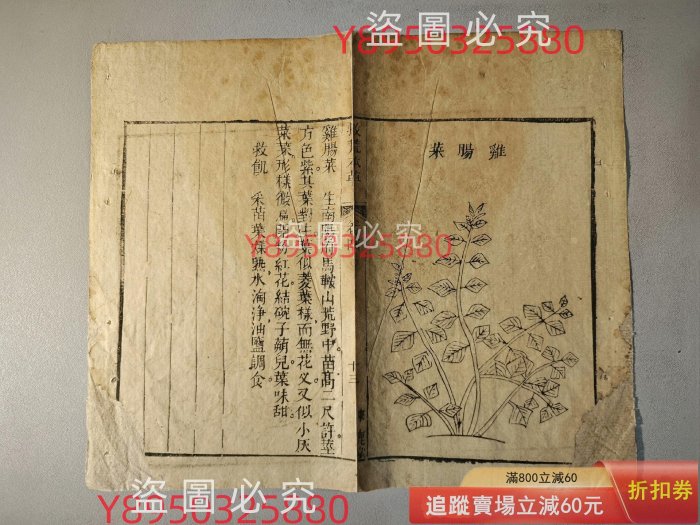 盜圖必究
X8950325880
雞腸菜
雞腸菜 生南陽府馬鞍山荒野中苗高二尺許莖
方色紫其葉對生葉似菱葉樣而無花叉又似小灰
菜葉形樣微扁開粉紅花結碗子蒴兒葉味甜
救飢 采苗葉煠熟水淘淨油鹽調食
救荒本草
十三
盜圖必究
X8950325880
盜圖必究
X8950325880
滿800立減60
追蹤賣場立減60元
折扣券